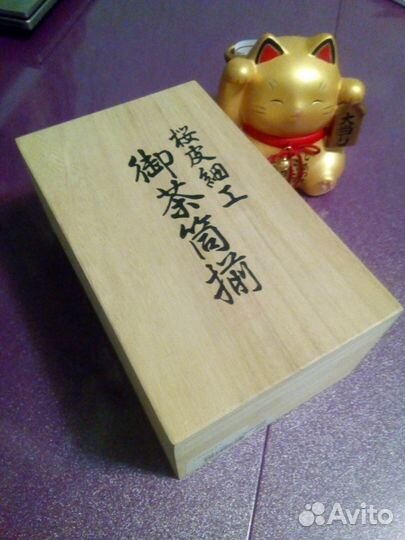 桜皮細工
御茶筒揃
大当り
Avito